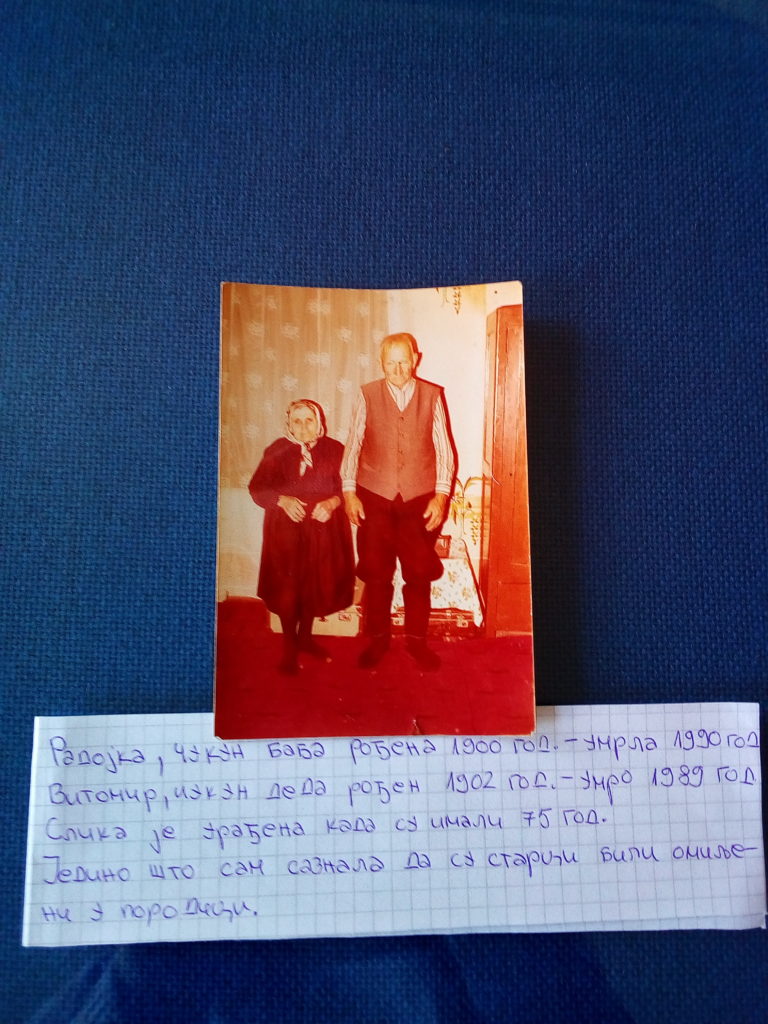 Радојка, чукун баба рођена 1900 год. – умрла 1990 год
Витомир, чукун деда рођен 1902 год. – умро 1989 год
Слика је урађена када су имали 75 год.
Једино што сам сазнала да су старији били омиље-
ни у породици.